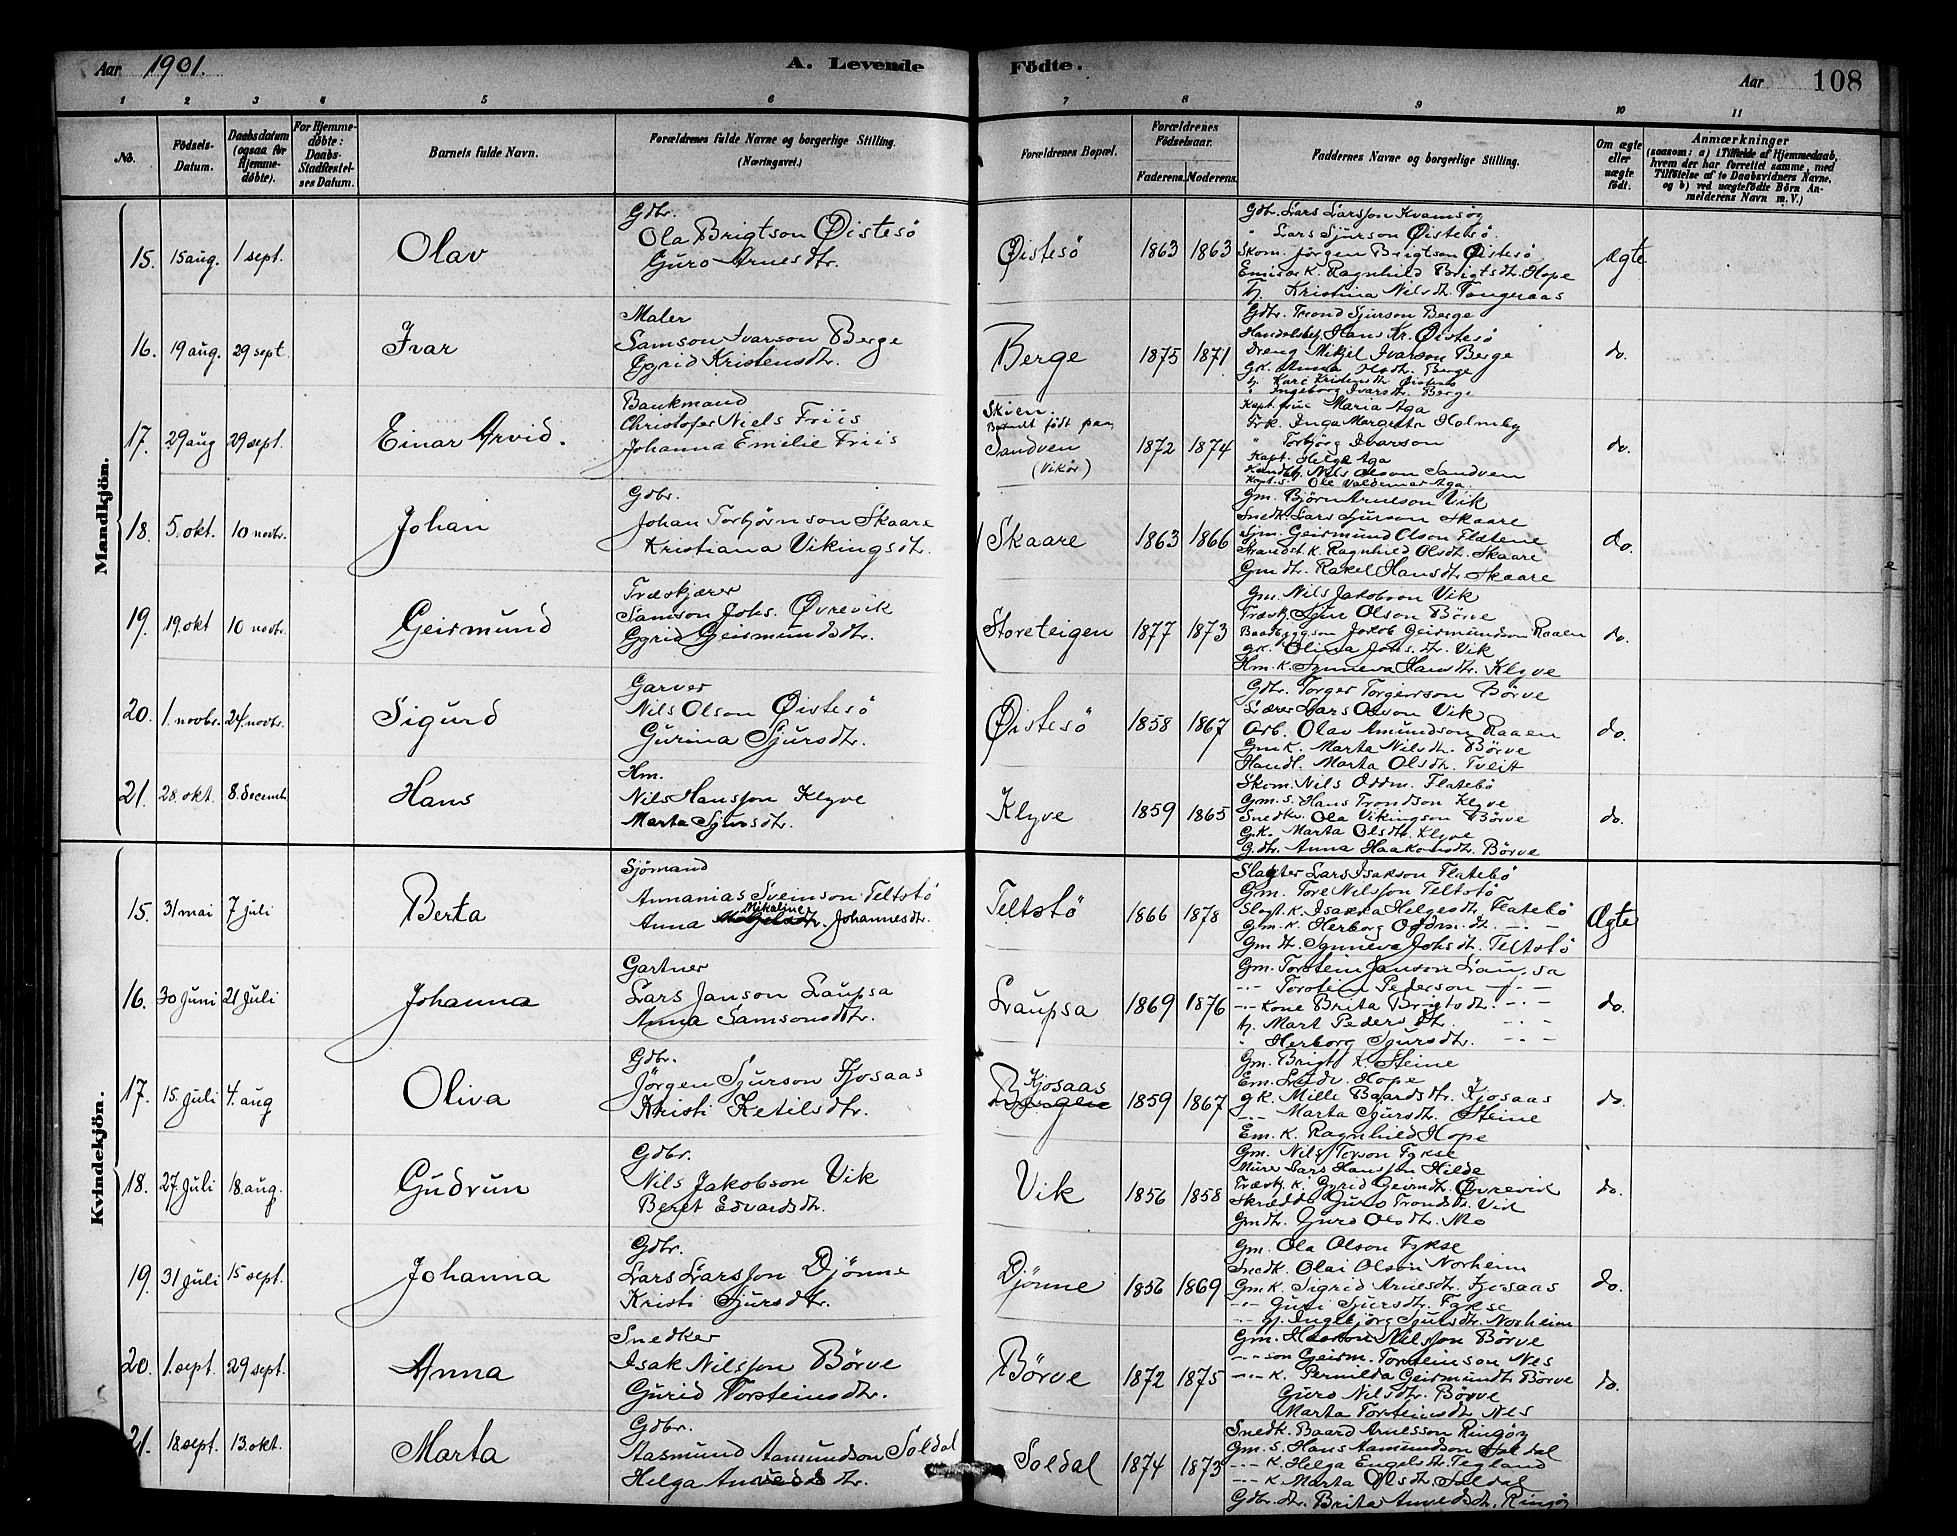 Aar 1901.
A. Levende Födte.
Aar 108
1 2 3 4 5 6 7 8 9 10 11
No.
Födsels-Datum.
Daabsdatum (ogsaa for Hjemme-døbte).
For Hjemme-døbte: Daabs-Stadfæstel-ses Datum.
Barnets fulde Navn.
Forældrenes fulde Navne og borgerlige Stilling. (Næringsvei.)
Forældrenes Bopæl.
Forældrenes Födselsaar.
Faderens. Moderens.
Faddernes Navne og borgerlige Stilling.
Om ægte eller uægte födt.
Anmærkninger
(saasom: a) i Tilfælde af Hjemmedaab,
hvem der har forrettet samme, med
Tilföielse af to Daabsvidners Navne,
og b) ved uægtefödte Börn An-
melderens Navn m. V.)
Mandkjön.
15. 15 aug. 1 sept. Olav
Gdbr.
Ola Brigtson Øistesö
Guro Arnesdtr.
Øistesö 1863 1863
Gdbr. Lars Larsson Kvamsøy
" Lars Sjurson Øistesö.
Skom. Jörgen Brigtson Øistesö
K. Ragnhild Brigtsdtr. Hope
Kristina Nilsdtr. Tangeraas
Ægte
16. 19 aug. 29 sept. Ivar
Maler
Samson Ivarson Berge
Gyrid Kristensdtr.
Berge 1875 1871
Gdbr. Trond Sjurson Berge
Hans Kr. Øistesö
Dreng Mikjel Ivarson Berge
Gk. Anna Olsdtr. Berge
Kari Kristensdtr. Øistesö
" Ingeborg Ivarsdtr. Berge
do.
17. 29 aug 29 sept. Einar Arvid.
Bankmand
Christofer Niels Friis
Johanna Emilie Friis
Skien.
Barnet födt paa
Sandven
(Vikör)
1872 1874
Kapt. frue Maria Aga
Frk. Inga Margreta Holmby
" Torbjörg Ivarson
Kapt. Helge Aga
Nils Olson Sandven
Kapt. s. Ole Valdemar Aga.
do.
18. 5. okt. 10 novbr. Johan
Gdbr.
Johan Torbjörnson Skaare
Kristiana Vikingsdtr.
Skaare 1863 1866
Gm. Bjørn Arneson Vik
Snedk. Lars Sjurson Skaare
Geirmund Olson Flatene
K. Ragnhild Olsdtr. Skaare
Gmdtr. Rakel Hansdtr. Skaare
do.
19. 19. okt 10 novbr. Geirmund
Træskjærer
Samson Johs. Øvrevik
Gyrid Geirmundsdtr.
Storeteigen 1877 1873
Gm. Nils Jakobson Vik
Træskj. Sjur Olson Börve
Baadbyggson Jakob Geirmundson Raaen
gk. Oliva Johs.dtr. Vik
Hm. k. Synneva Hansdtr. Klyve
do.
20. 1. novbr. 24. novbr. Sigurd
Garver
Nils Olson Øistesö
Gurina Sjursdtr.
Øistesö 1858 1867
Gdbr. Torger Torgerson Börve
Lærer Lars Olson Vik
Arb. Olav Amundson Raaen
Gmk. Marta Nilsdtr. Börve
Handl. Marta Olsdtr. Tveit
do.
21. 28. okt. 8. decembr. Hans
Hm.
Nils Hansson Klyve
Marta Sjursdtr.
Klyve 1859 1865
Skom. Nils Oddm. Flatebö
Gm. s. Hans Trondson Klyve
Snedkr. Ola Vikingson Börve
G.K. Marta Olsdtr. Klyve
G.dtr. Anna Haakonsdtr. Börve
do.
Kvindekjön.
15. 31 mai 7 juli Berta
Sjömand
Annanias Sveinson Teltstö
Mikaline
Anna Johannesdtr.
Teltstö 1866 1878
Slagter Lars Isakson Flatebö
Gm. Tore Nilsson Teltstö
Slagt. k. Isakka Helgesdtr. Flatebö
Gm. k. Herborg Oddm.dtr. -"-
Gmdtr. Synneva Johs.dtr. Teltstö
Ægte
16. 30 juni 21 juli Johanna
Gartner
Lars Janson Laupsa
Anna Samsonsdtr.
Laupsa 1869 1876
Gm. Torstein Janson Laupsa
-"- Torstein Pederson -"-
-"- Kone Brita Brigtsdtr. -"-
Mart Pedersdtr. -"-
" Herborg Sjursdtr. -"-
do.
17. 15. juli 4. aug Oliva
Gdbr.
Jörgen Sjurson Kjosaas
Kristi Ketilsdtr.
Kjosaas
1859 1867
Gm. Brigt K. Steine
Em. Ludv. Hope
gk. Mille Baardsdtr. Kjosaas
-"- Marta Sjursdtr. Steine
Em. K. Ragnhild Hope
do.
18. 27. juli 18. aug. Gudrun
Gdbr.
Nils Jakobson Vik
Beret Edvardsdtr.
Vik 1856 1858
Gm. Nils Torson Fykse
Murer Lars Hansson Hilde
Træskj. k. Gyrid Geirmdtr. Øvrevik
Guro Trondsdtr. Vik
Gmdtr. Guro Olsdtr. Mo
do.
19. 31 juli 15 sept. Johanna
Gdbr.
Lars Larsson Djönne
Kristi Sjursdtr.
Djönne 1856 1869
Gm. Ola Olson Fykse
Snedk. Olai Olson Norheim
Gmk. Sigrid Arnesdtr. Kjosaas
-"- Guri Sjursdtr. Fykse
Ingebjörg Sjursdtr. Norheim
do.
20. 1. sept. 29 sept. Anna
Snedker
Isak Nilsson Börve
Gurid Torsteinsdtr.
Börve 1872 1875
Gm. Haakon Nilsson Börve
-"- son Geirm. Torsteinson Nes
-"- k. Pernilda Geirmundtr. Börve
Guro Nilsdtr. Börve
Marta Torsteinsdtr. Nes
do.
21. 18. sept. 13. okt. Marta
Gdbr.
Aasmund Aamundson Soldal
Helga
Soldal 1874 1873
Snedk. Baard Arnesson Ringöy
Gm. s. Hans Aamundson Soldal
-"- k. Helga Engelsdtr. Tegland
-"- k. Marta Olsdtr. Soldal
Gdbr. dtr. Brita Ringöy